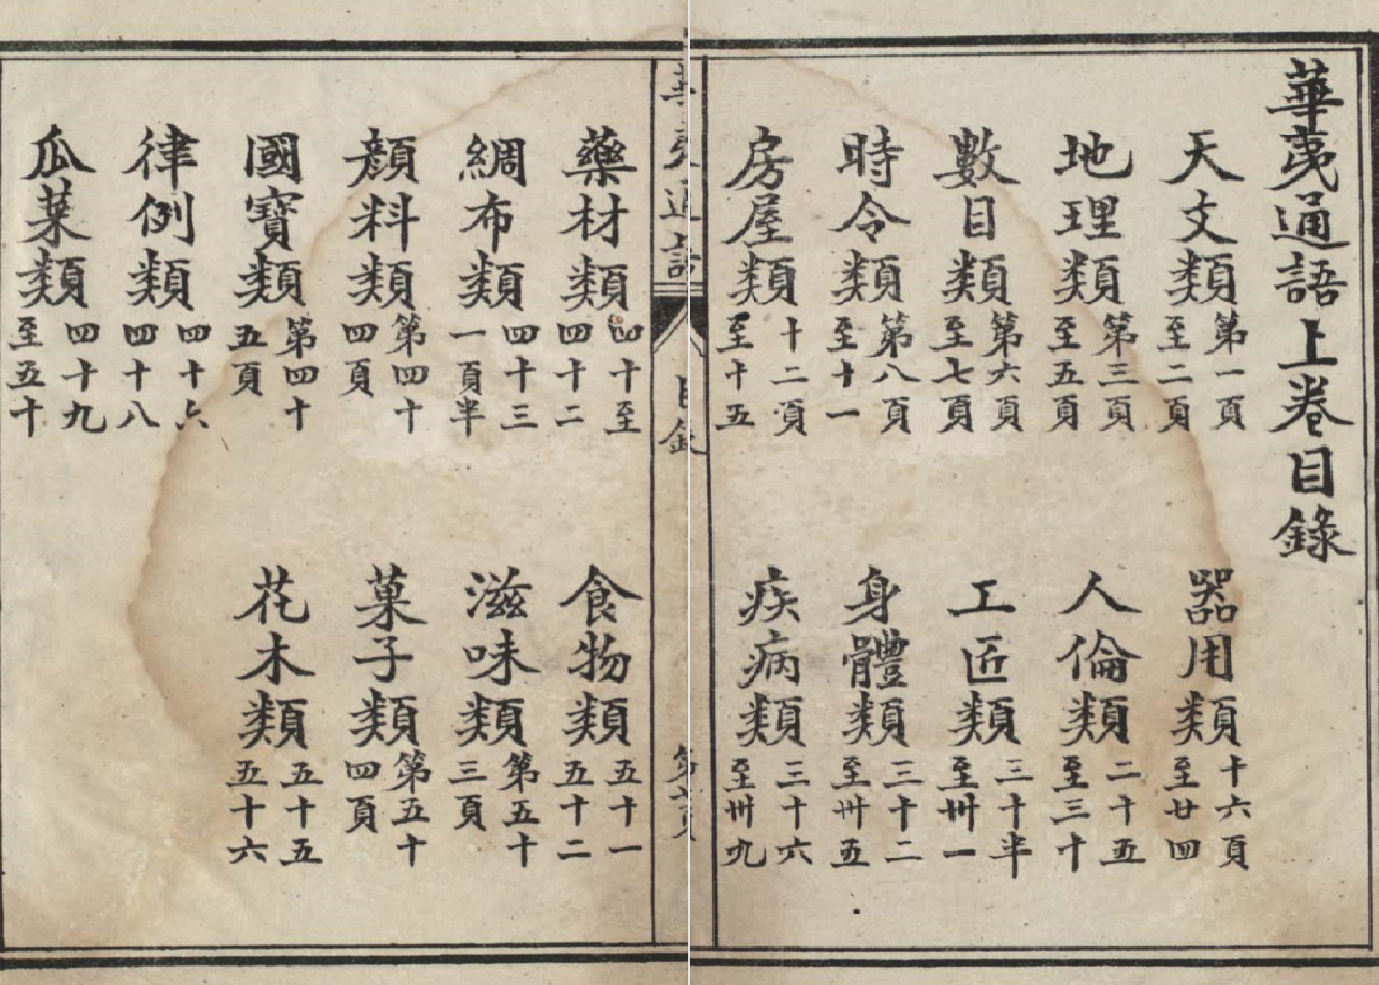 華夷通語上卷目錄
天文類 第一頁至二頁
地理類 第三頁至五頁
數目類 第六頁至七頁
時令類 第八頁至十一
房屋類 十二頁至十五
器用類 十六頁至廿四
人倫類 二十五至三十
工匠類 三十半至卅一
身體類 三十二至卅五
疾病類 三十六至卅九
華夷通語 目錄
藥材類 四十至四十二
綢布類 四十三一頁半
顏料類 第四十四頁
國寶類 第四十五頁
律例類 四十六四十八
瓜菜類 四十九至五十
食物類 五十一五十二
滋味類 第五十三頁
菓子類 第五十四頁
花木類 五十五五十六